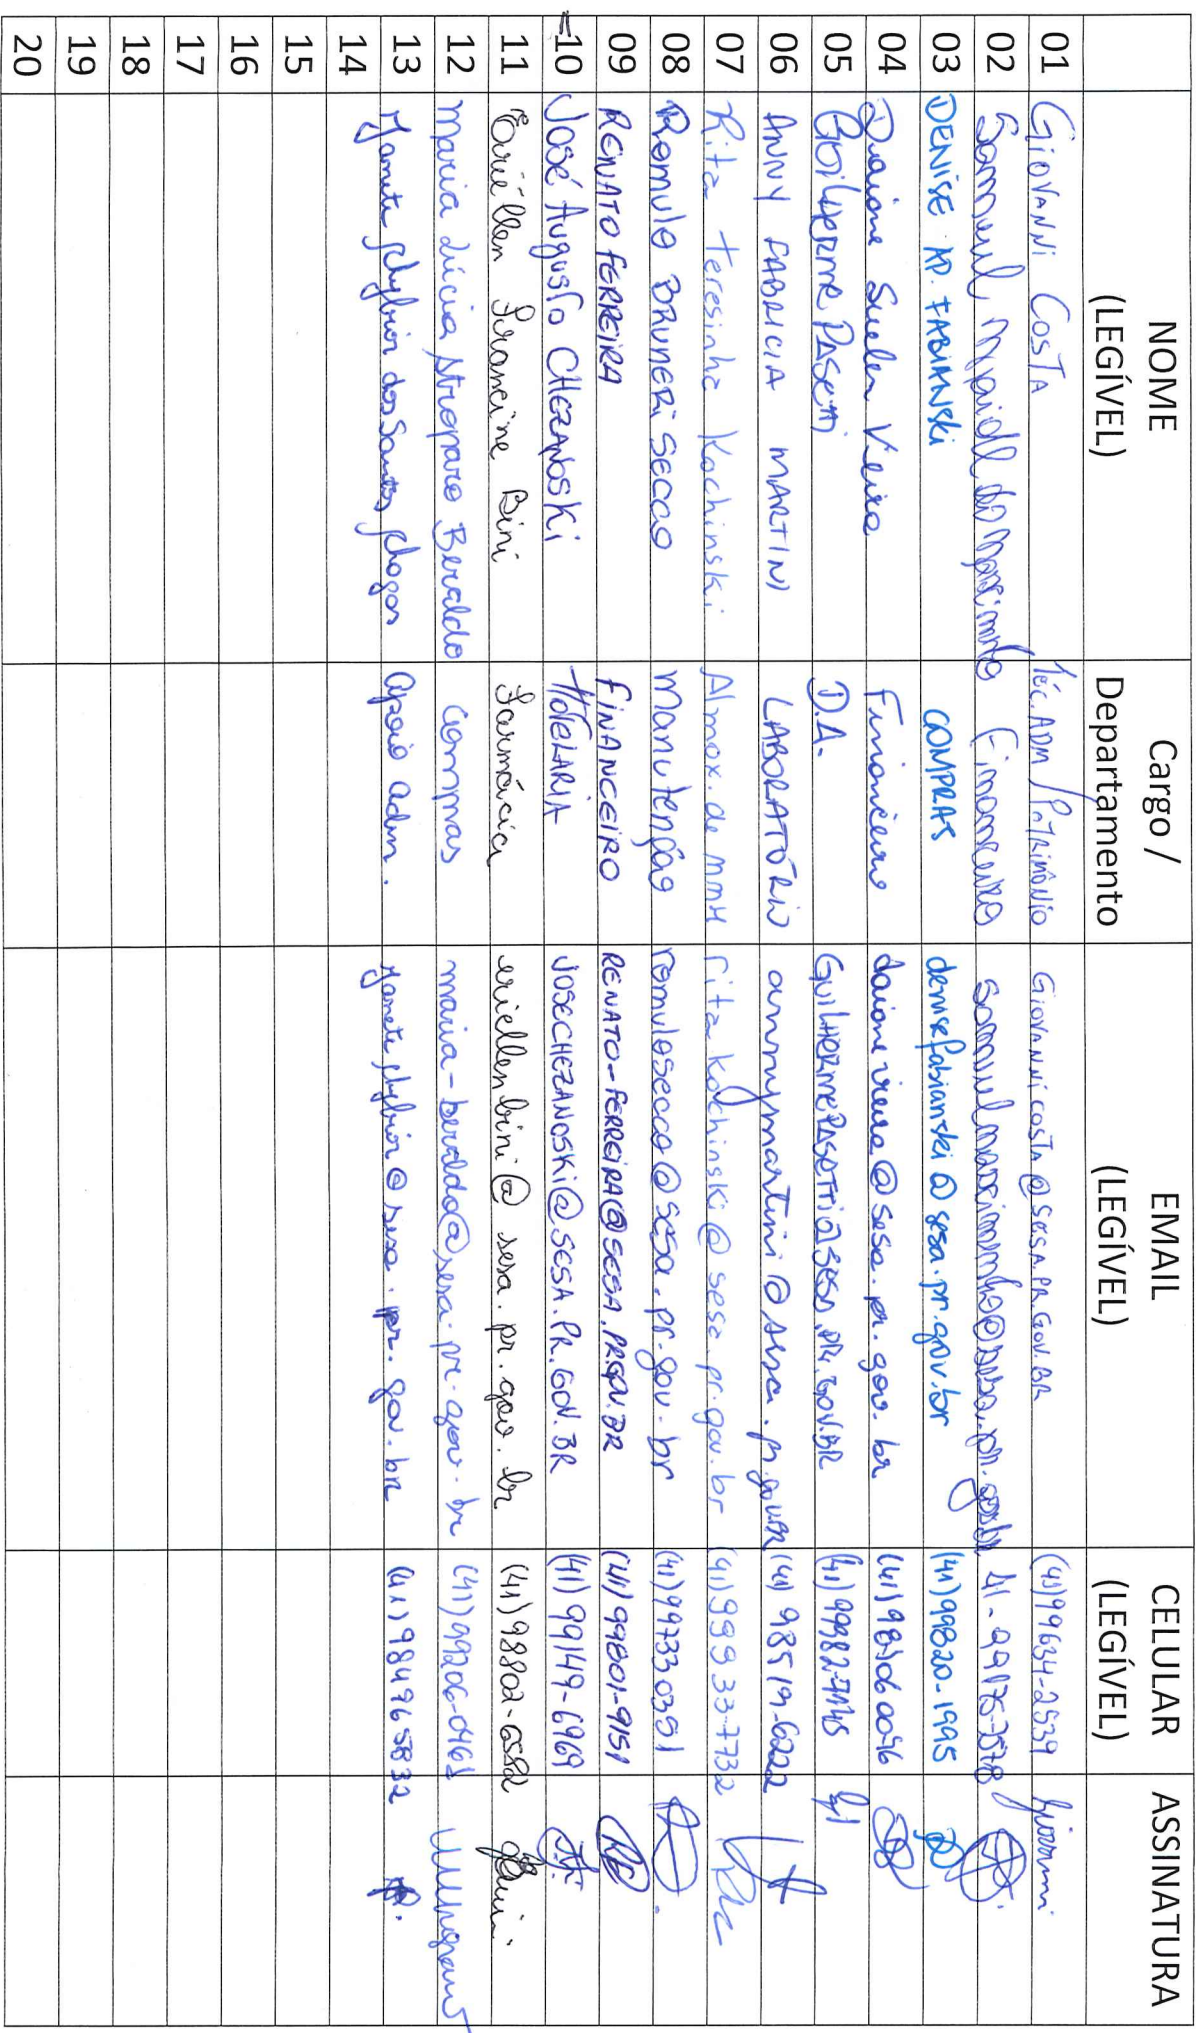 NOME (LEGÍVEL) Cargo / Departamento EMAIL (LEGÍVEL) CELULAR (LEGÍVEL) ASSINATURA
01 GIOVANNI COSTA TÉC. ADM / PATRIMÔNIO GIOVANNICOSTA@SESA.PR.GOV.BR (41)99634-2539 Giovanni
02 Samuel Financeiro 41-99175-7578
03 DENISE AP. FABIANSKI COMPRAS denisefabianski@sesa.pr.gov.br (41)99820-1995
04 Daiane Suelen Vieira Financeiro daiane.vieira@sesa.pr.gov.br
05 GUILHERME PASETTI D.A. GUILHERMEPASETTI@SESA.PR.GOV.BR
06 ANNY FABRICIA MARTINI LABORATÓRIO annymartini@sesa.pr.gov.br (41) 98519-6222
07 Rita Teresinha Kochinski Almox. de MMH rita.kochinski@sesa.pr.gov.br (41)99933-7732
08 Romulo BRUNERI SECCO Manutenção romulosecco@sesa.pr.gov.br (41)997330351
09 RENATO FERREIRA FINANCEIRO RENATO-FERREIRA@SESA.PR.GOV.BR (41)99801-9151
10 JOSÉ AUGUSTO CHEZANOSKI HOTELARIA JOSECHEZANOSKI@SESA.PR.GOV.BR (41)99149-6969
11 Eriéllen Francine Bini Farmácia eriellenbini@sesa.pr.gov.br (41)98802-6582
12 Maria Lúcia Stroparo Beraldo Compras maria-beraldo@sesa.pr.gov.br (41)99206-0461
13 dos Santos apoio adm. @sesa.pr.gov.br (41)984965832
14
15
16
17
18
19
20